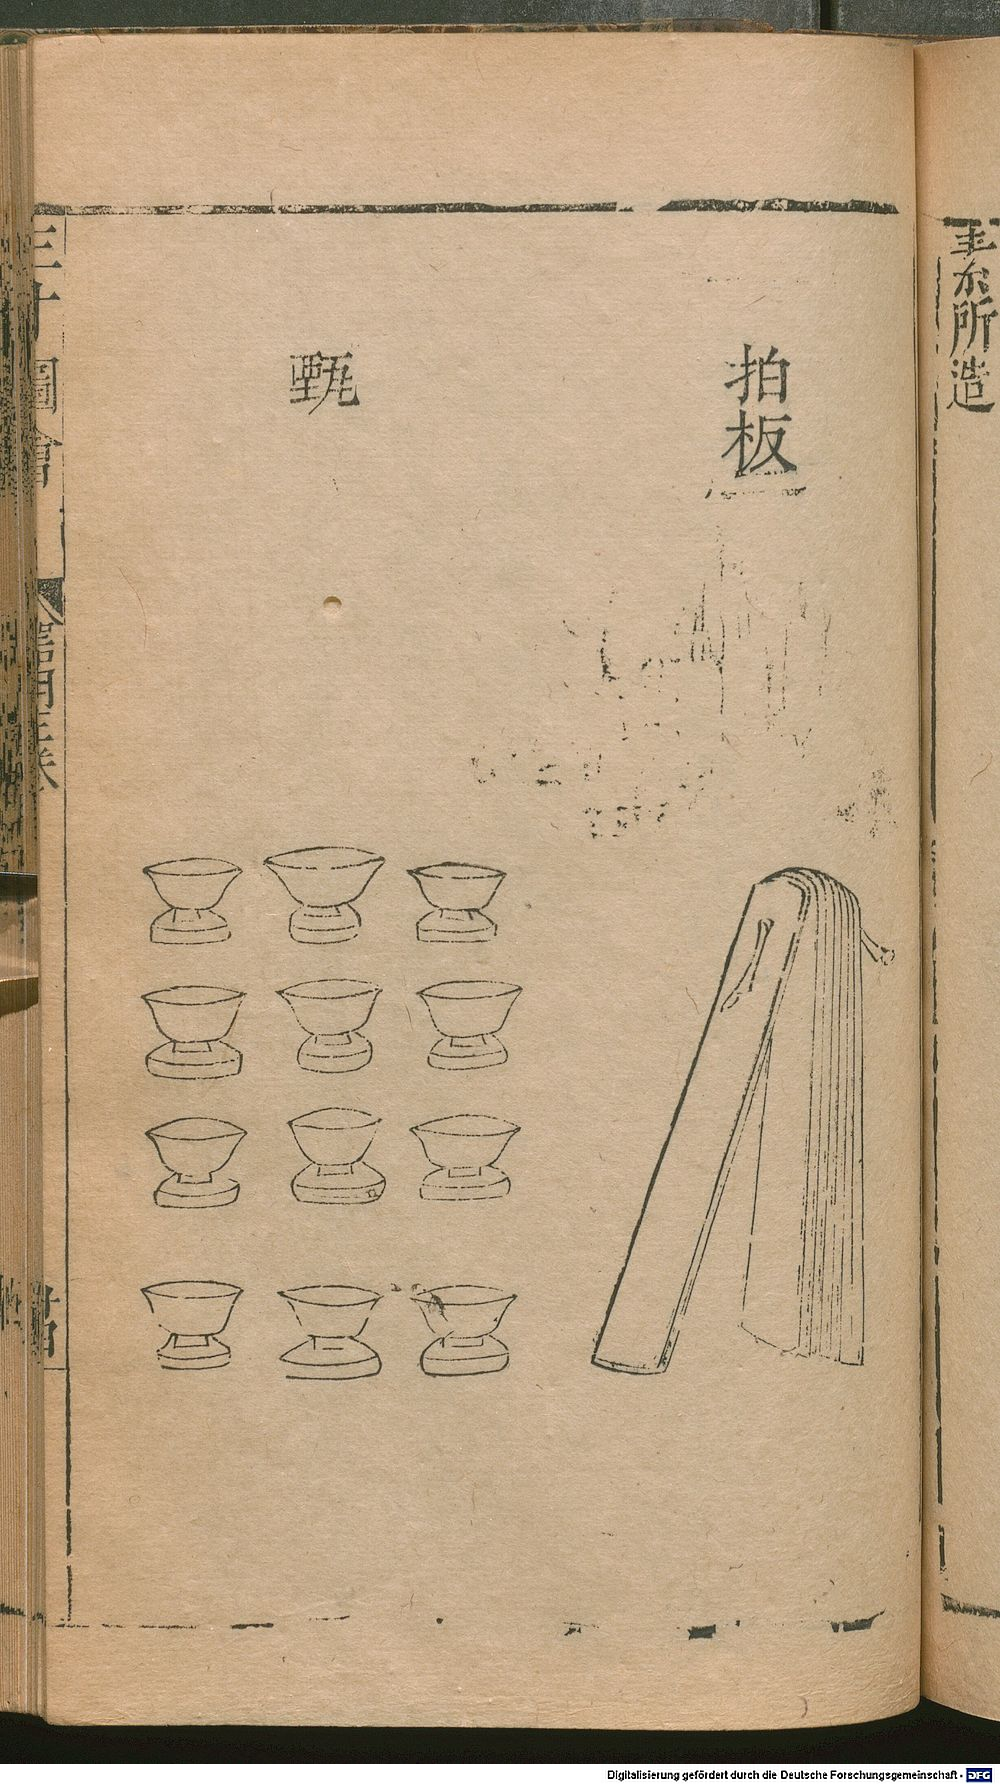 素所造
拍板
甄
三才圖會
器用三卷
Digitalisierung gefördert durch die Deutsche Forschungsgemeinschaft - DFG